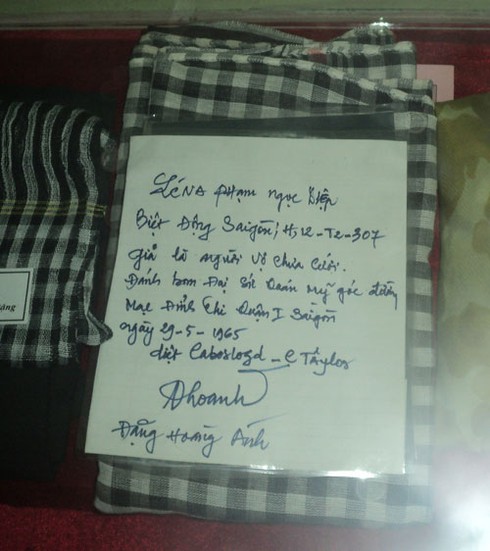 LÉNA Phạm Ngọc Diệp
Biệt Động Saigòn; H,12-T2-307
giả là người vợ chưa cưới.
Đánh bom Đại Sứ Quán Mỹ góc đường
Mạc Đỉnh Chi Quận I Saigòn
ngày 29-5-1965
diệt Caboslozd_C Tâylos
Ahoanh
Đặng Hoàng Ánh